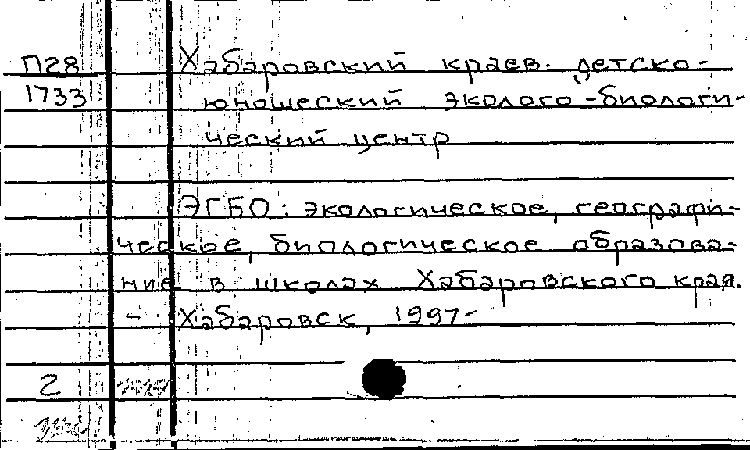 П28 Хабаровский краев. детско-
1733 юношеский эколого-биологи-
ческий центр
ЭГБО: экологическое, географи-
ческое, биологическое образова-
ние в школах Хабаровского края.
- Хабаровск, 1997-
2